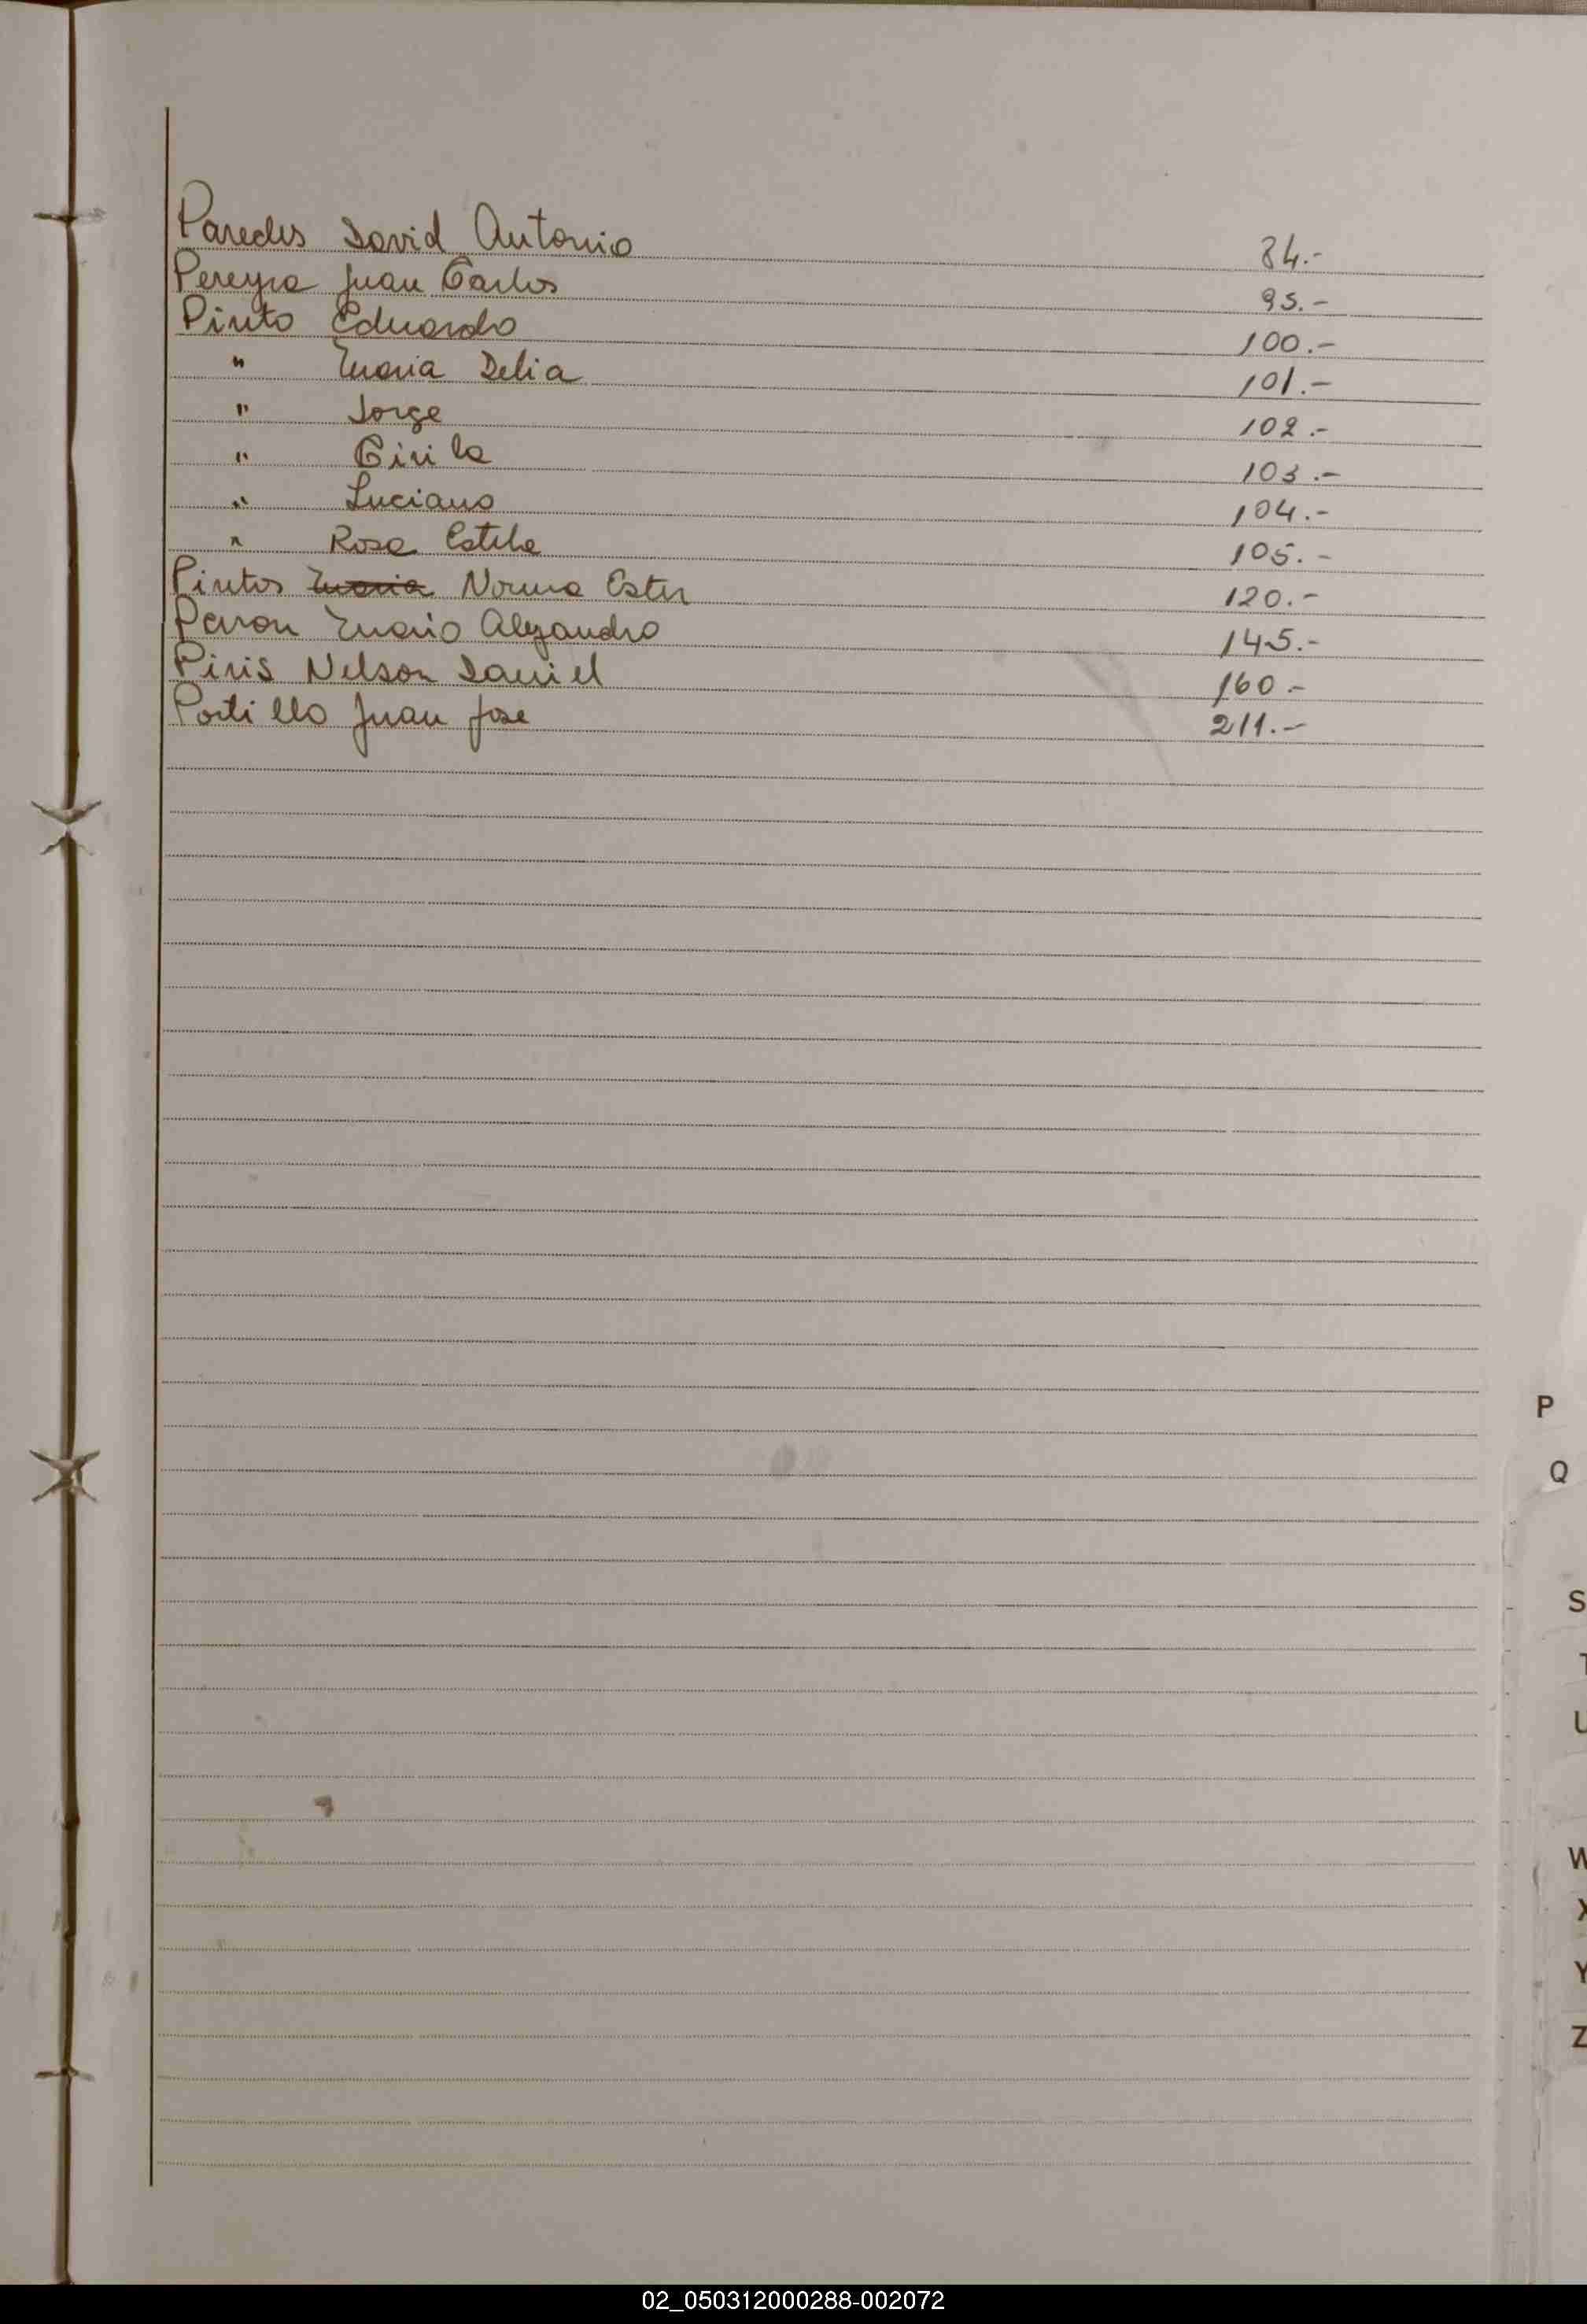 Paredes David Antonio 84.-
Pereyra Juan Carlos 95.-
Pinto Eduardo 100.-
" Maria Delia 101.-
" Jorge 102.-
" Cirila 103.-
" Luciano 104.-
" Rosa Estela 105.-
Pintos Maria Norma Ester 120.-
Peron Mario Alejandro 145.-
Piris Nelson Daniel 160.-
Portillo Juan Jose 211.-
P
Q
S
T
U
W
X
Y
Z
02_050312000288-002072